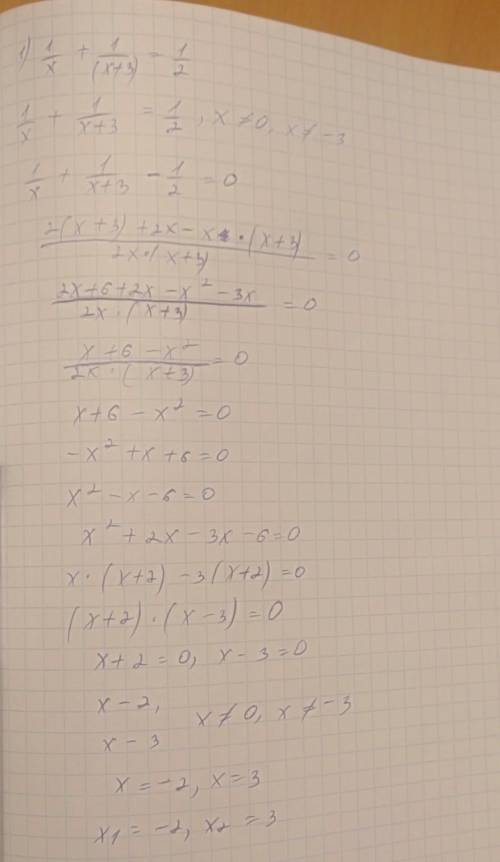 1) 1/x + 1/(x+3) = 1/2
1/x + 1/x+3 = 1/2, x ≠ 0, x ≠ -3
1/x + 1/x+3 - 1/2 = 0
2(x+3)+2x-x·(x+3) / 2x·(x+3) = 0
2x+6+2x-x²-3x / 2x·(x+3) = 0
x+6-x² / 2x·(x+3) = 0
x+6-x² = 0
-x²+x+6=0
x²-x-6=0
x²+2x-3x-6=0
x·(x+2)-3(x+2)=0
(x+2)·(x-3)=0
x+2=0, x-3=0
x-2, x≠0, x≠-3
x-3
x=-2, x=3
x1=-2, x2=3